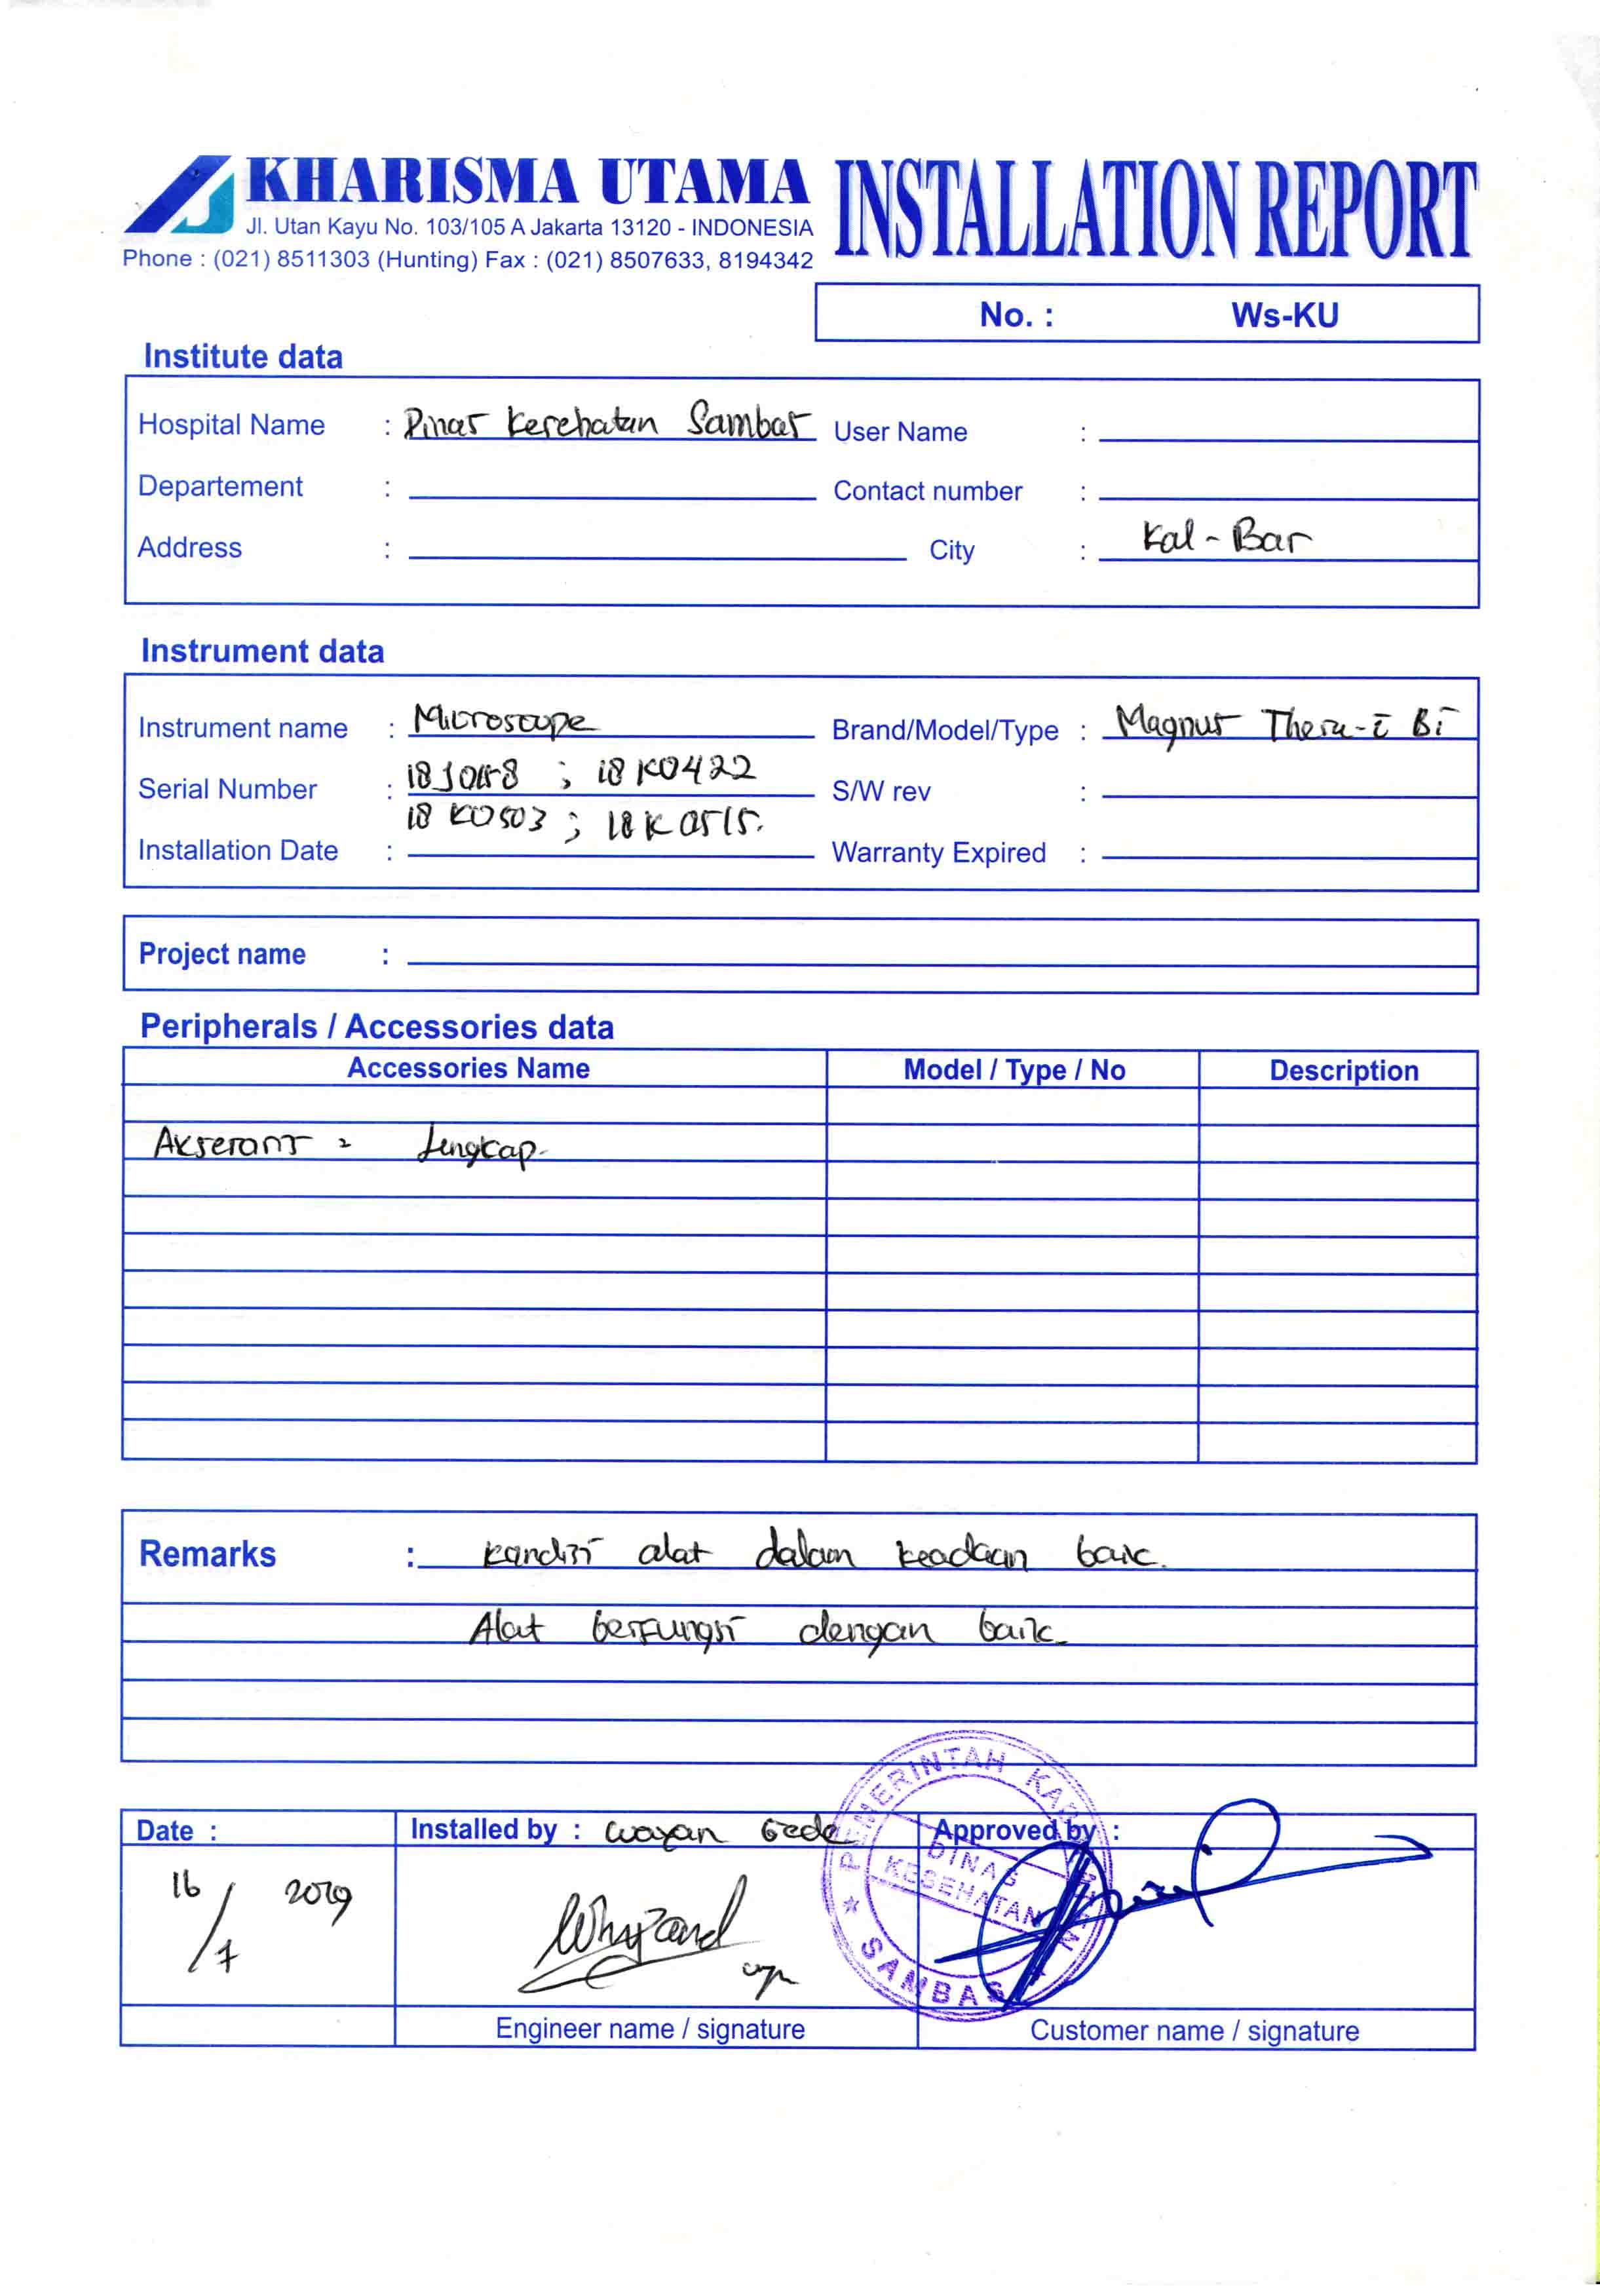 KHARISMA UTAMA
Jl. Utan Kayu No. 103/105 A Jakarta 13120 - INDONESIA
Phone : (021) 8511303 (Hunting) Fax : (021) 8507633, 8194342
INSTALLATION REPORT
No. : Ws-KU
Institute data
Hospital Name : Dinas Kesehatan Sambas User Name :
Departement : Contact number :
Address : City : Kal-Bar
Instrument data
Instrument name : Microscope Brand/Model/Type : Magnus Theia-i Bi
Serial Number : ; 18K0422 S/W rev :
18K0503 ; 18K0515.
Installation Date : Warranty Expired :
Project name :
Peripherals / Accessories data
Accessories Name Model / Type / No Description
Aksesoris = Lengkap.
Remarks : Kondisi alat dalam keadaan baik.
Alat berfungsi dengan baik.
Date : Installed by : Wayan Gede Approved by :
16/7 2019
PEMERINTAH KABUPATEN
DINAS
KESEHATAN
SAMBAS
Engineer name / signature Customer name / signature